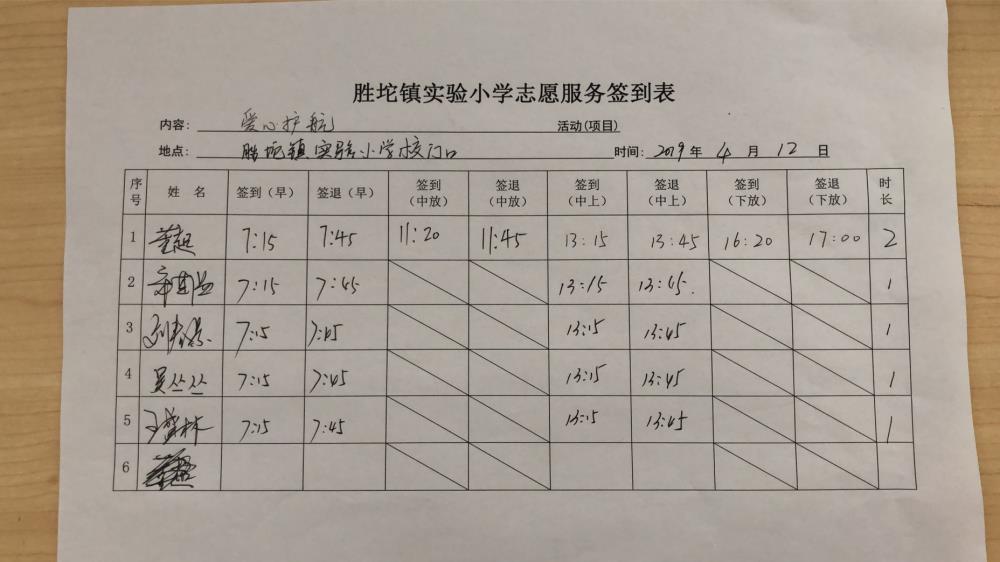 胜坨镇实验小学志愿服务签到表
内容: 爱心护航 活动(项目)
地点: 胜坨镇实验小学校门口 时间: 2019 年 4 月 12 日
序号 姓 名 签到（早） 签退（早） 签到（中放） 签退（中放） 签到（中上） 签退（中上） 签到（下放） 签退（下放） 时长
1 7:15 7:45 11:20 11:45 13:15 13:45 16:20 17:00 2
2 7:15 7:45 13:15 13:45. 1
3 7:15 7:45 13:15 13:45 1
4 吴丛丛 7:15 7:45 13:15 13:45 1
5 7:15 7:45 13:15 13:45 1
6